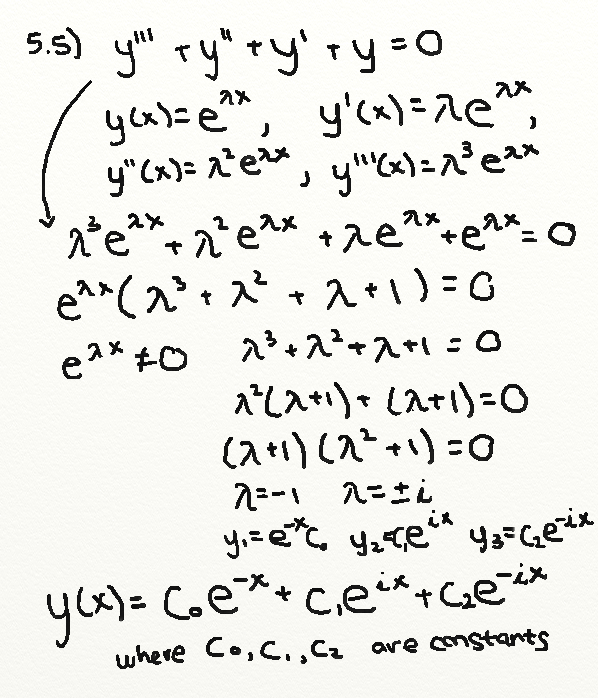 5.5) y''' + y'' + y' + y = 0
y(x) = e^{λx}, y'(x) = λe^{λx},
y''(x) = λ²e^{λx}, y'''(x) = λ³e^{λx}
λ³e^{λx} + λ²e^{λx} + λe^{λx} + e^{λx} = 0
e^{λx}(λ³ + λ² + λ + 1) = 0
e^{λx} ≠ 0 λ³ + λ² + λ + 1 = 0
λ²(λ+1) + (λ+1) = 0
(λ+1)(λ² + 1) = 0
λ = -1 λ = ±i
y₁ = e^{-x}c₀ y₂ = c₁e^{ix} y₃ = c₂e^{-ix}
y(x) = C₀e^{-x} + C₁e^{ix} + C₂e^{-ix}
where C₀, C₁, C₂ are constants